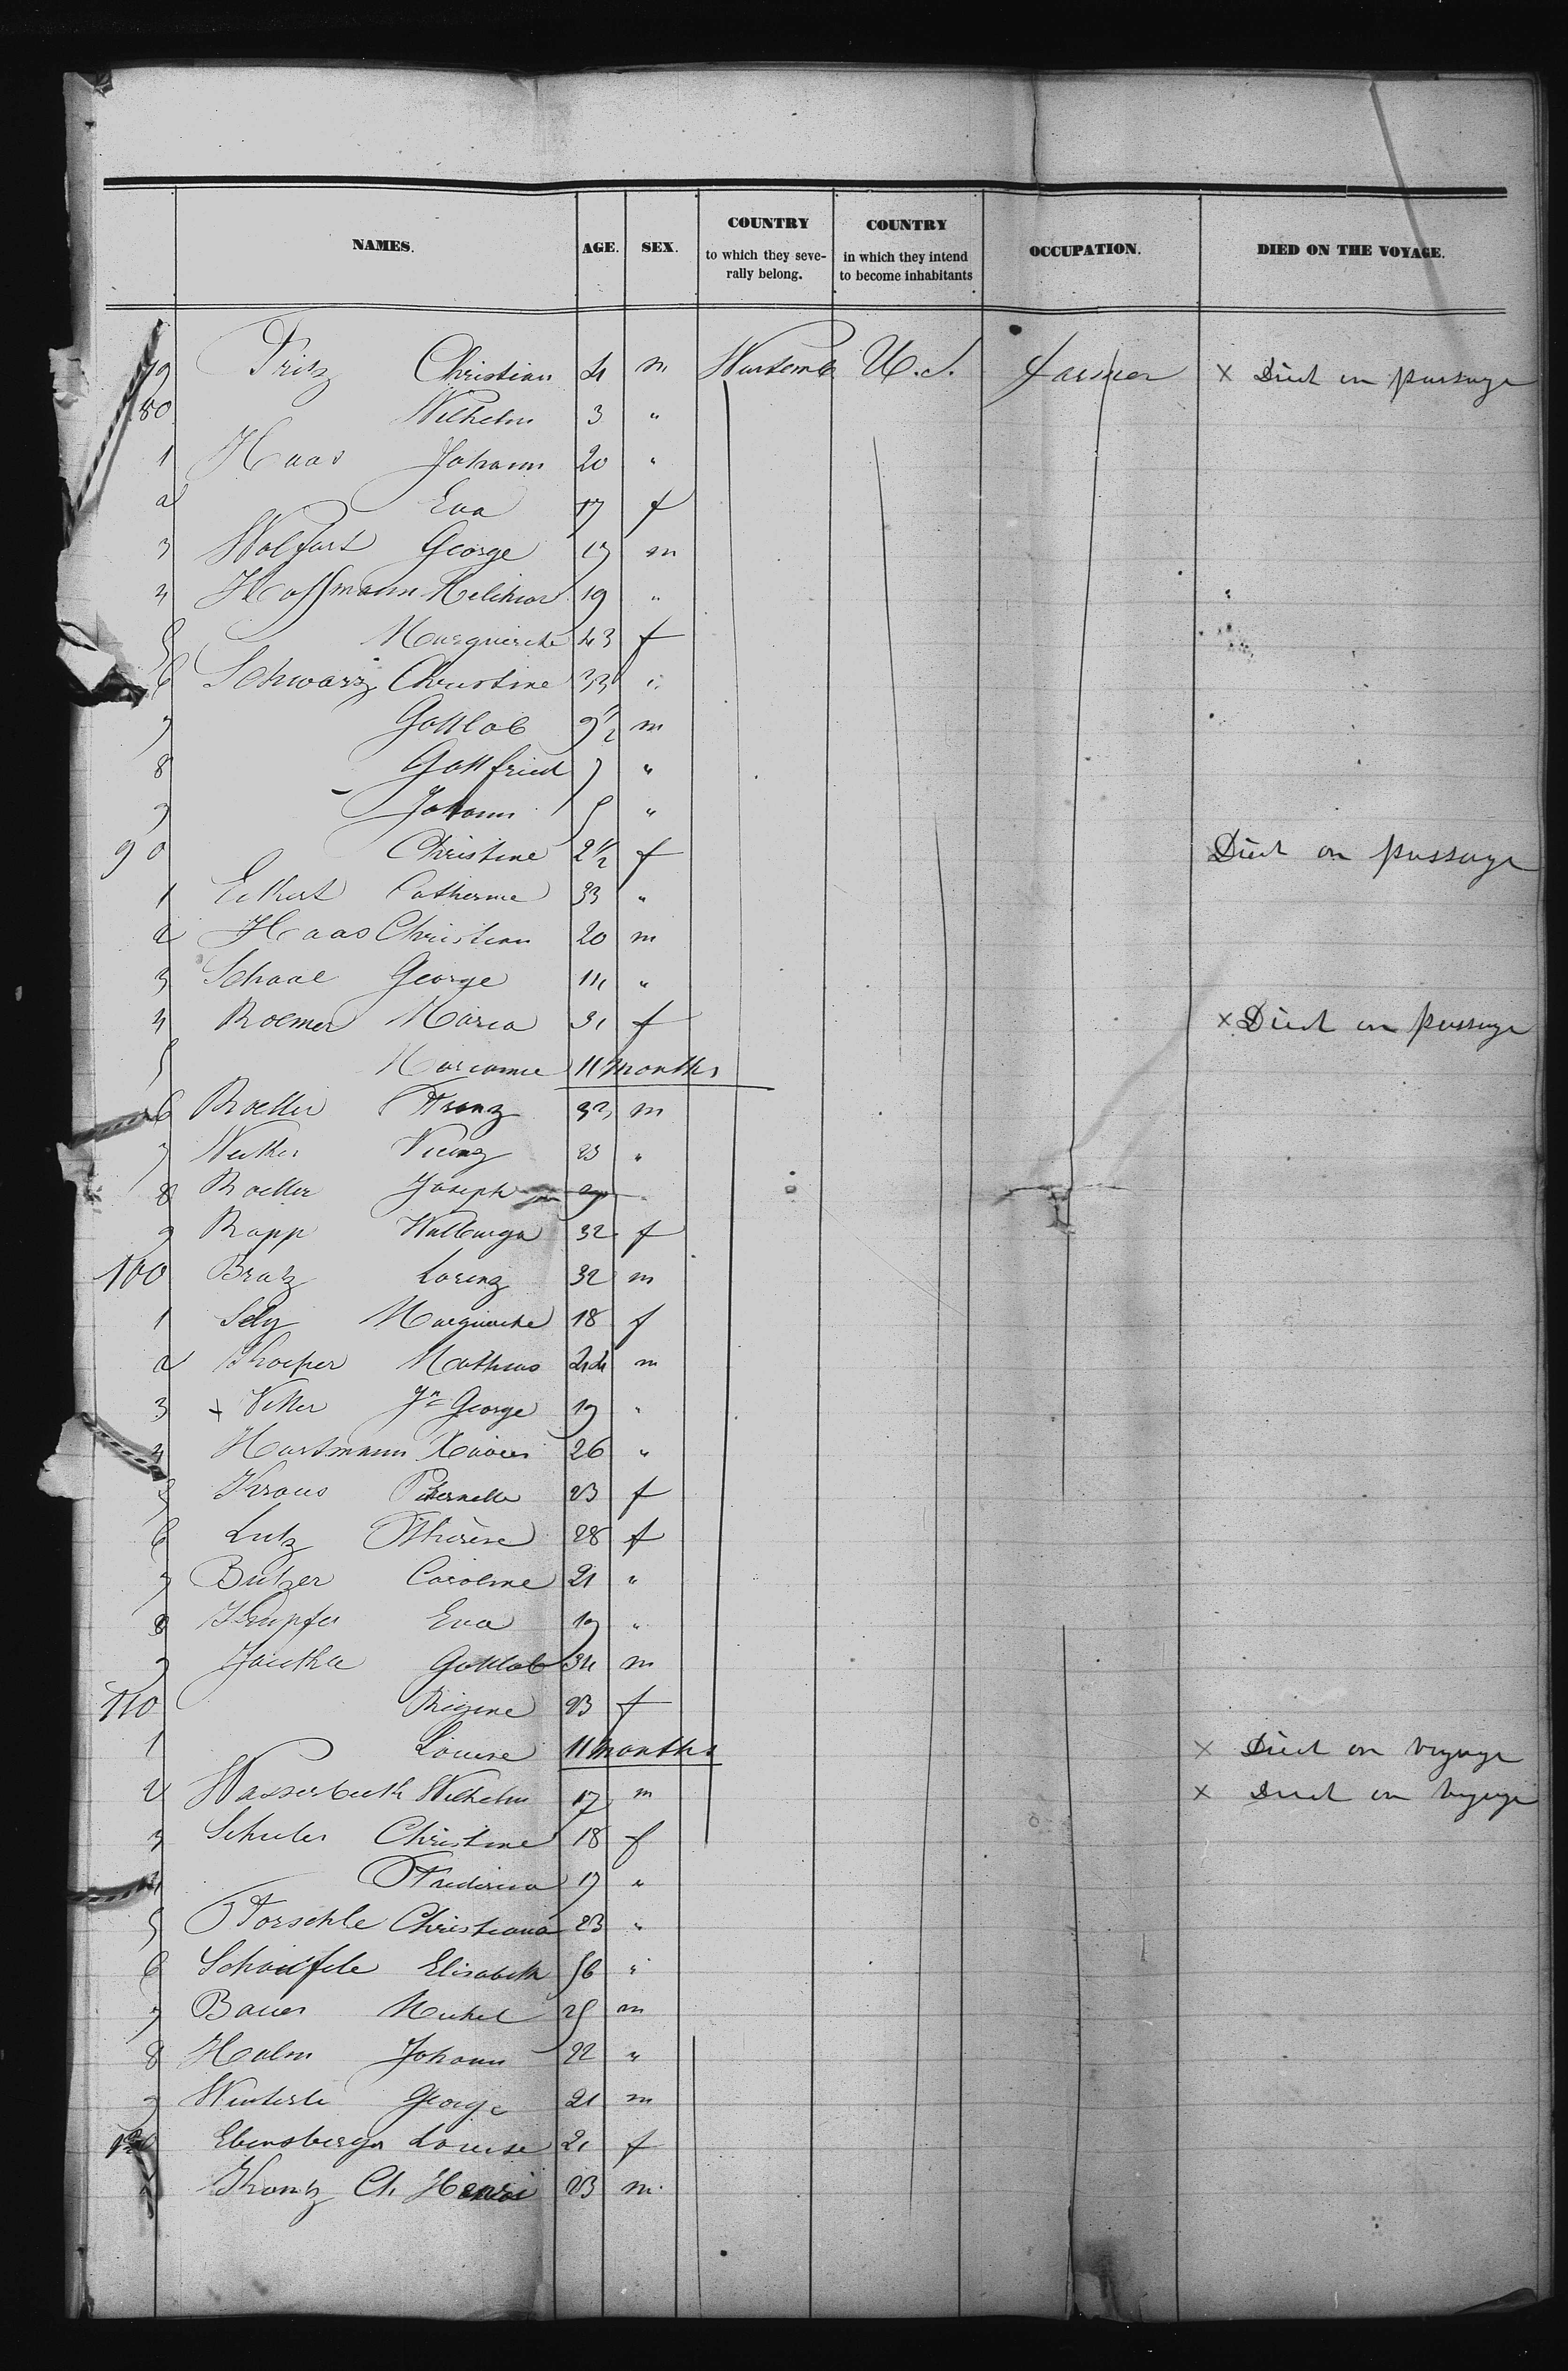 NAMES. AGE. SEX. COUNTRY to which they severally belong. COUNTRY in which they intend to become inhabitants OCCUPATION. DIED ON THE VOYAGE.
79 Fritz Christian 4 m Wurtemb U.S. farmer x Died on passage
80 Wilhelm 3 "
1 Haas Johann 20 "
2 Eva 17 f
3 Wolfart George 17 m
4 Hoffmann Melchior 19 "
5 Marguerite 43 f
6 Schwarz Christine 33 "
7 Gottlob 9 1/2 m
8 Gottfried 7 "
9 Johann 5 "
90 Christine 2 1/2 f Died on passage
1 Eckert Catherine 33 "
2 Haas Christian 20 m
3 Schaal George 14 "
4 Roemer Maria 31 f x Died on passage
5 Marianne 11 months
6 Roeller Franz 32 m
7 23 "
8 Roeller Joseph
9 Rapp Walburga 32 f
100 Bratz Lorenz 32 m
1 Sely Marguerite 18 f
2 Mathias 44 m
3 x Vetter Jn George 19 "
4 Hartmann Xavier 26 "
5 Kraus Peternelle 23 f
6 Lutz Thérèse 28 f
7 Butzer Caroline 21 "
8 Eva 19 "
9 Gottlob 34 m
110 Regine 23 f
1 Louise 11 months x Died on voyage
2 Wasserbeck Wilhelm 17 m x Died on voyage
3 Schuler Christine 18 f
4 Frederica 17 "
5 Forschle Christiana 23 "
6 Schaeifele Elisabeth 56 "
7 Bauer Michel 25 m
8 Halm Johann 22 "
9 Winterle George 21 m
120 Ebensberger Louise 21 f
1 Ch. Henri 23 m.